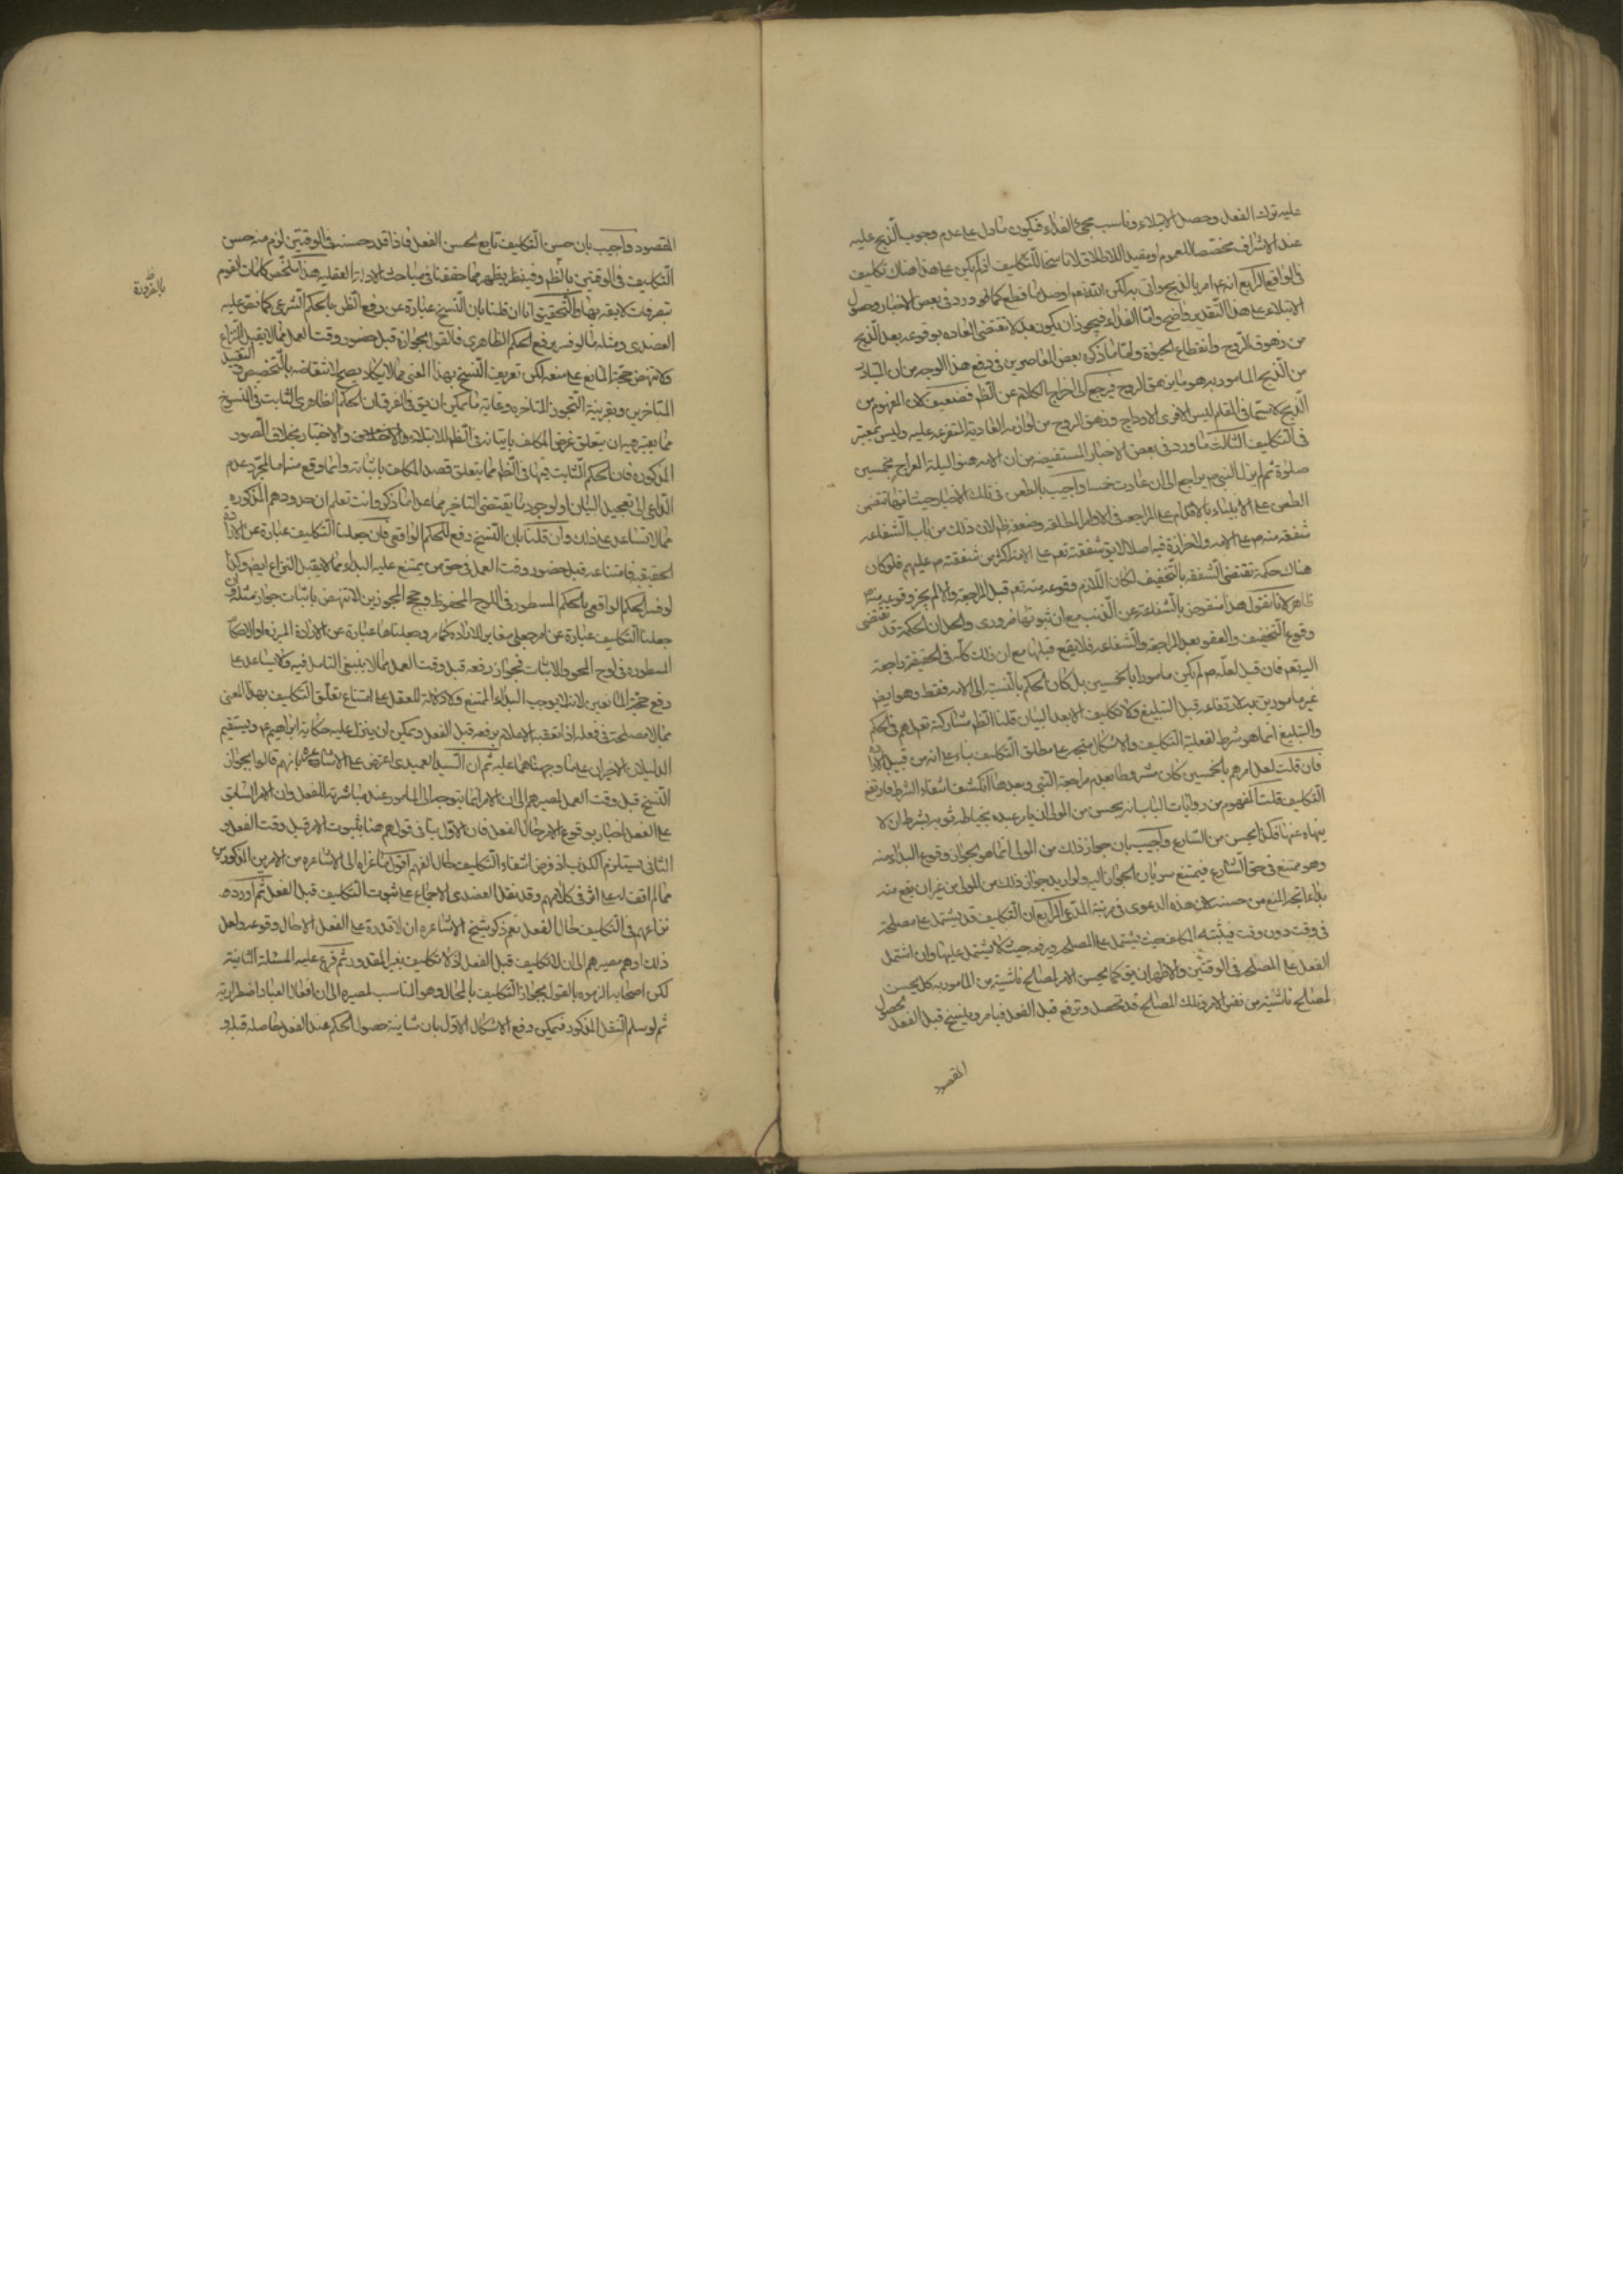 عليه ترك الفعل وحصل الابتلاء وناسب مجئ الفداء فيكون مادل على عدم وجوب الذبح عليه
عند الاشراف مخصصا للعموم او مقيد اللاطلاق لا ناسخا للتكليف اذ لم يكن على هذا هناك تكليف
فى الواقع الرابع انه امر بالذبح واتى به لكن الله تعم اوصل ما قطع كما ورد فى بعض الاخبار وحصول
الابتلاء على هذا التقدير واضح واما الفداء فيجوز ان يكون عما تقتضى العاده بوقوعه بعد الذبح
من زهوق الروح وانقطاع الحيوة واما ما ذكره بعض المعاصرين فى دفع هذا الوجه من ان المتبادر
من الذبح المامور به هو ما يزهق الروح فيرجع الى اخراج الكلام عن الظم فضعيف لان المفهوم من
الذبح لا سيما فى المقام ليس الا فرى الاوداج وزهق الروح من لوازمه العادية المتفرعه عليه وليس بمعتبر
فى التكليف الثالث ما ورد فى بعض الاخبار المستفيضه من ان الامه ليلة المعراج بخمسين
صلوة ثم لم يزل النبى ص يراجع الى ان عادت خمسا واجيب بالطعن فى تلك الاخبار حيث انها تتضمن
الطعن على الانبياء بالاقدام على المراجعه فى الاوامر المطلقه وضعفه ظم لان ذلك من باب الشفاعه
شفقة منه ص على الامه ولا حزازة فيه اصلا لا يق شفقته تعم على الامه اكثر من شفقته ص عليهم فلو كان
هناك حكمة تقتضى الشفقه بالتخفيف لكان اللازم وقوعه منه تعم قبل المراجعة والا لم يجز وقوعه منه
ظاهر لانا نقول هذا منقوض بالشفاعة عن الذنب مع ان ثبوتها ضرورى والحل ان الحكمة قد تقتضى
وقوع التخفيف والعفو بعد المراجعة والشفاعه فلا يقع قبلها مع ان ذلك كله فى الحقيقة راجعة
اليه تعم فان قيل لعله ص لم يكن مامورا بالخمسين بل كان الحكم بالنسبة الى الامه فقط وهو ايضا
غير مامورين به لارتفاعه قبل التبليغ ولا تكليف الا بعد البيان قلنا الظم مشاركته تعم لهم فى الحكم
والتبليغ انما هو شرط لفعلية التكليف والاشكال متجه على مطلق التكليف بناء على انه من قبيل الارادة
فان قلت لعل امرهم بالخمسين كان مشروطا بعدم مراجعة النبى وبعدها انكشف انتفاء الشرط فارتفع
التكليف قلت المفهوم من روايات الباب انه يحسن من المولى ان يامر عبده بخياطة ثوبه بشرط ان لا
ينهاه عنها فكذا يحسن من الشارع واجيب بان جواز ذلك من المولى انما هو لجواز وقوع البداء منه
وهو ممتنع فى حق الشارع فيمتنع سريان الجواز اليه ولو اريد جواز ذلك من المولى من غير ان يقع منه
بداء اتجه المنع من حسنه لان هذه الدعوى فى مرتبة المدعى الرابع ان التكليف قد يشتمل على مصلحة
فى وقت دون وقت فيثبته المكلف حيث يشتمل على المصلحه ويرفعه حيث لا يشتمل عليها وان اشتمل
الفعل على المصلحه فى الوقتين والاظهر ان يق كما يحسن الامر لمصالح ناشئة من المامور به كك يحسن
لمصالح ناشئة من نفس الامر وتلك المصالح قد تحصل وترفع قبل الفعل فيامر وينسخ قبل الفعل لحصول
المقصود
المقصود واجيب بان حسن التكليف تابع لحسن الفعل فاذا قدر حسنه فى الوقتين لزم منه حسن
التكليف فى الوقتين بالظم وفيه نظر يظهر مما حققنا فى مباحث الادلة العقليه هذا ملخص كلمات القوم
بتصرفات لا يفقه بها والتحقيق انا ان قلنا بان النسخ عبارة عن رفع الظن بالحكم الشرعى كما نص عليه
العضدى ومثله ما لو فسر برفع الحكم الظاهرى فالقول بجوازه قبل حضور وقت العمل مما لا يقبل النزاع
ولا تنهض حجة المانع على منعه لكن تعريف النسخ بهذا المعنى مما لا يكاد يصح لانتقاضه بالتخصيص والتقييد
المتاخرين وبقرينة التجوز المتاخره وغاية ما يمكن ان يق فى الفرق ان الحكم الظاهرى الثابت فى النسخ
مما يعتبر فيه ان يتعلق غرض المكلف باتيانه فى الظم للابتلاء والاختبار بخلاف الصور
المذكوره فان الحكم الثابت فيها فى الظم مما يتعلق قصد المكلف باثباته وانما وقع منه اما لمجرد عدم
الداعى الى تعجيل البيان او لوجود ما يقتضى التاخير مما عدا ما ذكر وانت تعلم ان حدودهم المذكوره
مما لا تساعد على ذلك وان قلنا بان النسخ رفع للحكم الواقعى فان جعلنا التكليف عبارة عن الارادة
الحقيقيه فامتناعه قبل حضور وقت العمل فى حق من يمتنع عليه البداء مما لا يقبل النزاع ايضا وكذا
لو فسر الحكم الواقعى بالحكم المسطور فى اللوح المحفوظ وحجج المجوزين لا تنهض باثبات جواز مثله وان
جعلنا التكليف عبارة عن امر جعلى مغاير للارادة كما مر وجعلناها عبارة عن الارادة المبرزه او الاحكام
المسطوره فى لوح المحو والاثبات فجواز رفعه قبل وقت العمل مما لا ينبغى التامل فيه ولا يساعد على
رفع حجة المانعين لانه لا يوجب البداء الممتنع ولا دلالة للعقل على امتناع تعلق التكليف بهذا المعنى
بما لا مصلحة فى فعله اذا تعقبه الاعلام برفعه قبل الفعل ويمكن ان ينزل عليه حكاية ابراهيم ع ويستقيم
الدليلان الاخيران على ما وجهناهما عليه ثم ان السيد العميدى اعترض على الاشاعره بانهم قالوا بجواز
النسخ قبل وقت العمل لمصيرهم الى ان الامر انما يتوجه الى المامور عند مباشرته للفعل وان الامر السابق
على الفعل اخبار بوقوع الامر حال الفعل فان الاول ينافى قولهم هنا بثبوت الامر قبل وقت الفعل و
الثانى يستلزم الكذب اذ فرض انتفاء التكليف حال الفهم اقول ما عزاه الى الاشاعره من الامرين المذكورين
مما لم اقف له على اثر فى كلامهم وقد نقل العضدى الاجماع على ثبوت التكليف قبل الفعل ثم اورده
نزاعهم فى التكليف حال الفعل نعم ذكر شيخ الاشاعره ان لا قدرة على الفعل الا حال وقوعه ولعل
ذلك اوهم مصيرهم الى ان لا تكليف قبل الفعل اذ لا تكليف بغير المقدور ثم فرع عليه المسئلة الثانية
لكن اصحابه الزموه بالقول بجواز التكليف بالمحال وهو المناسب لمصيره الى ان افعال العباد اضطرارية
ثم لو سلم النقل المذكور فيمكن دفع الاشكال الاول بان شانية حصول الحكم عند الفعل حاصله قبله و